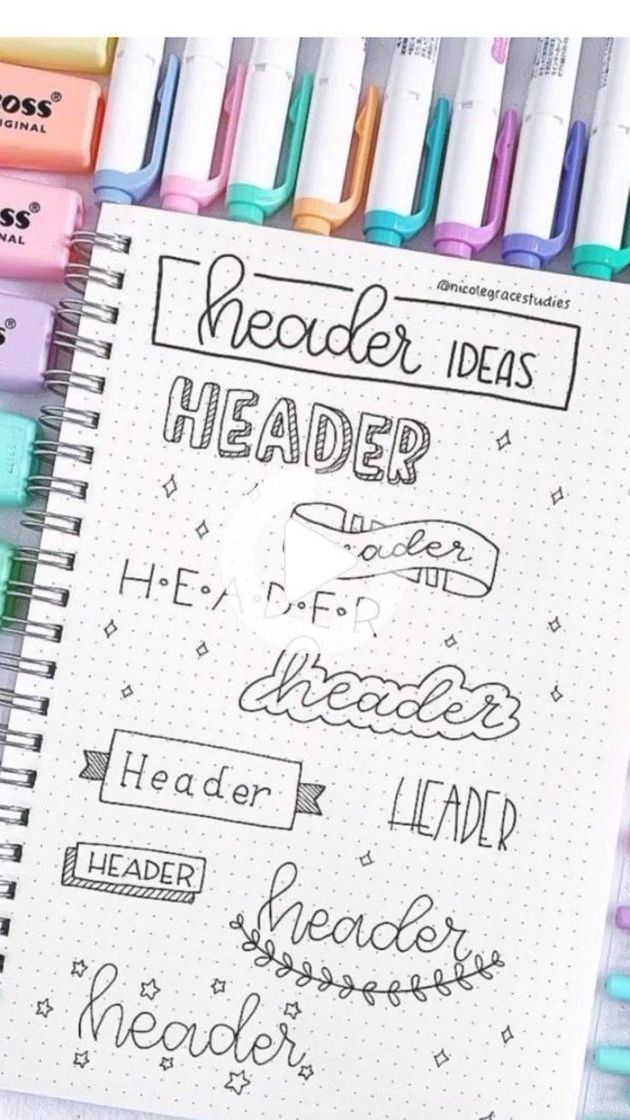 OSS®
IGINAL
SS®
NAL
@nicolegracestudies
header IDEAS
HEADER
header
H•E•A•D•E•R
header
Header
HEADER
HEADER
header
header